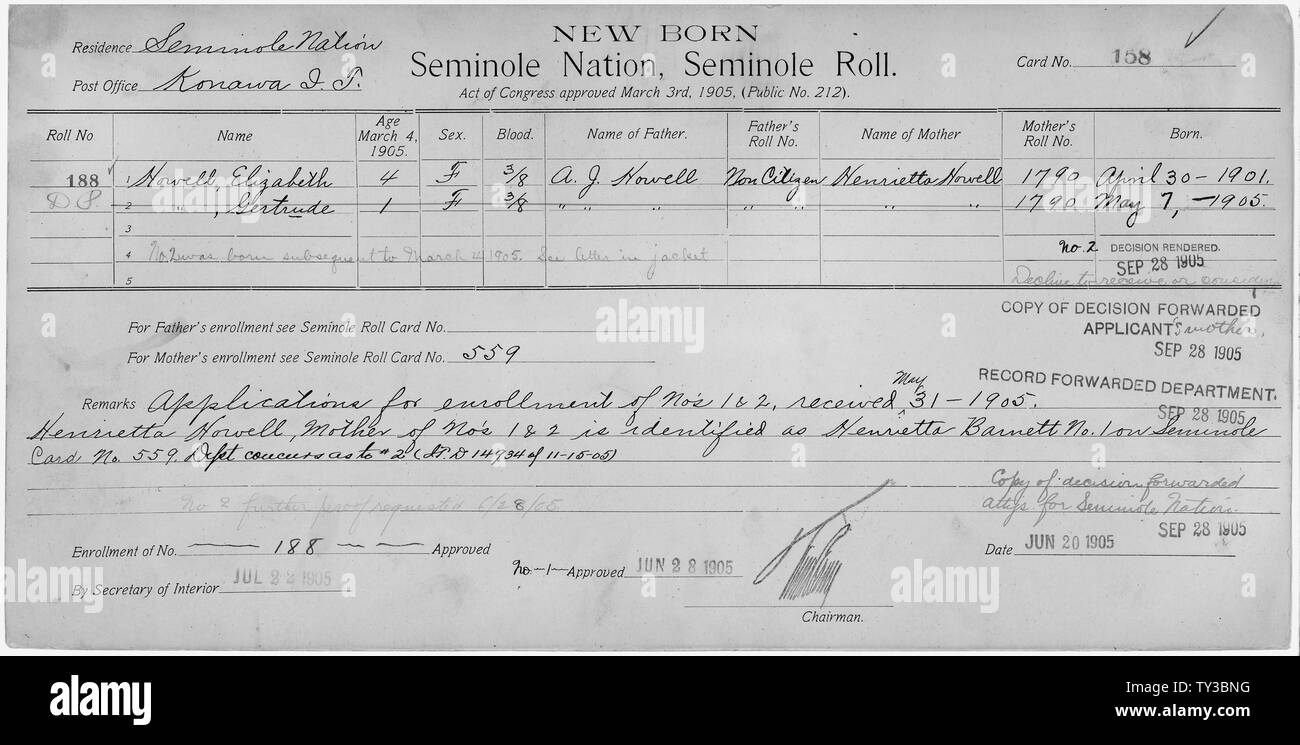 NEW BORN
Residence Seminole Nation
Seminole Nation, Seminole Roll.
Card No. 158
Post Office Konawa I. T.
Act of Congress approved March 3rd, 1905, (Public No. 212).
Roll No Name Age March 4, 1905. Sex. Blood. Name of Father. Father's Roll No. Name of Mother Mother's Roll No. Born.
188 1 Howell, Elizabeth 4 F 3/8 A. J. Howell Non Citizen Henrietta Howell 1790 April 30-1901.
D 2 " , Gertrude 1 F 3/8 " " " " " " " 1790 May 7, -1905.
3
No. 2 DECISION RENDERED.
4 No. 2 was born subsequent to March 4, 1905. See letter in jacket
SEP 28 1905
5
Decline to receive or consider
COPY OF DECISION FORWARDED
For Father's enrollment see Seminole Roll Card No.
APPLICANT'S mother.
SEP 28 1905
For Mother's enrollment see Seminole Roll Card No. 559
RECORD FORWARDED DEPARTMENT.
SEP 28 1905
Remarks Applications for enrollment of No's 1 & 2, received May 31-1905.
Henrietta Howell, Mother of No's 1 & 2 is identified as Henrietta Barnett No. 1 on Seminole
Card No. 559. Dept concurs as to #2 (I.T.D 14934 of 11-15-05)
Copy of decision forwarded
No 2 further proof requested 6/28/05
attys for Seminole Nation.
SEP 28 1905
Enrollment of No. 188 Approved
Date JUN 20 1905
By Secretary of Interior JUL 22 1905
No-1-Approved JUN 28 1905
Chairman.
alamy
Image ID: TY3BNG
www.alamy.com